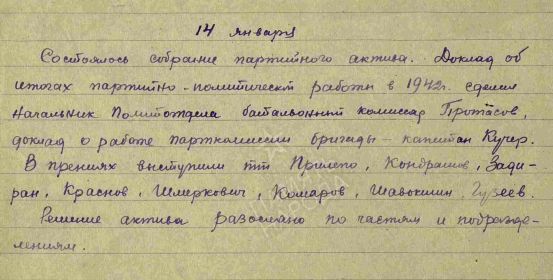 14 января
Состоялось собрание партийного актива. Доклад об
итогах партийно-политической работы в 1942г. сделал
Начальник Политотдела батальонный комиссар Протасов,
доклад о работе парткомиссии бригады - капитан Кучер.
В прениях выступили тт Прилепо, Кондрашов, Зади-
ран, Краснов, Шмеркович, Комаров, Шавокшин, Гуреев.
Решение актива разослано по частям и подразде-
лениям.